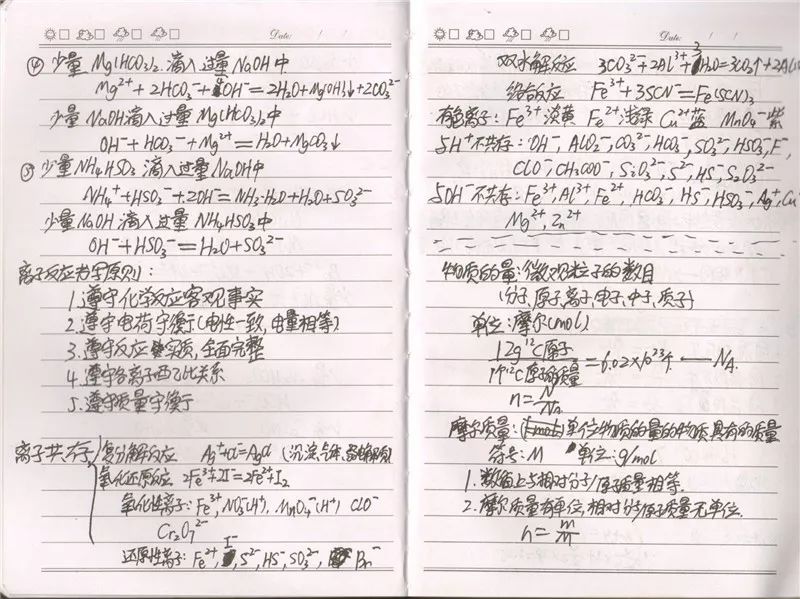 Date: / /
④ 少量 Mg(HCO₃)₂ 滴入过量 NaOH中
Mg²⁺ + 2HCO₃⁻ + 4OH⁻ = 2H₂O + Mg(OH)₂↓ + 2CO₃²⁻
少量 NaOH滴入过量 Mg(HCO₃)₂中
OH⁻ + HCO₃⁻ + Mg²⁺ = H₂O + MgCO₃↓
⑤ 少量 NH₄HSO₃ 滴入过量 NaOH中
NH₄⁺ + HSO₃⁻ + 2OH⁻ = NH₃·H₂O + H₂O + SO₃²⁻
少量 NaOH 滴入过量 NH₄HSO₃中
OH⁻ + HSO₃⁻ = H₂O + SO₃²⁻
离子反应方程原则:
1. 遵守化学反应客观事实
2. 遵守电荷守衡(电性一致,电量相等)
3. 遵守反应实质,全面完整
4. 遵守各离子配比关系
5. 遵守质量守衡
离子共存 复分解反应 Ag⁺+Cl⁻=AgCl (沉淀,气体,
氧化还原反应 2Fe³⁺+2I⁻=2Fe²⁺+I₂
氧化性离子: Fe³⁺, NO₃⁻(H⁺), MnO₄⁻(H⁺) ClO⁻
Cr₂O₇²⁻
还原性离子: Fe²⁺, I⁻, S²⁻, HS⁻, SO₃²⁻, Br⁻
Date: / /
双水解反应 3CO₃²⁻+2Al³⁺+3H₂O=3CO₂↑+2Al
络合反应 Fe³⁺+3SCN⁻=Fe(SCN)₃
有色离子: Fe³⁺ 淡黄 Fe²⁺ 浅绿 Cu²⁺ 蓝 MnO₄⁻ 紫
与H⁺不共存: OH⁻, AlO₂⁻, CO₃²⁻, HCO₃⁻, SO₃²⁻, HSO₃⁻, F⁻,
ClO⁻, CH₃COO⁻, SiO₃²⁻, S²⁻, HS⁻, S₂O₃²⁻
与OH⁻不共存: Fe³⁺, Al³⁺, Fe²⁺, HCO₃⁻, HS⁻, HSO₃⁻, Ag⁺, Cu
Mg²⁺, Zn²⁺
物质的量: 微观粒子的数目
(分子、原子、离子、电子、中子、质子)
单位: 摩尔(mol)
12g¹²C原子
1个¹²C原子质量 = 6.02×10²³个 ⟵ NA.
n = N/NA
摩尔质量: (1mol)单位物质的量的物质具有的质量
符号: M 单位: g/mol
1. 数值上与相对分子/原子质量相等.
2. 摩尔质量有单位,相对分子/原子质量无单位.
n = m/M